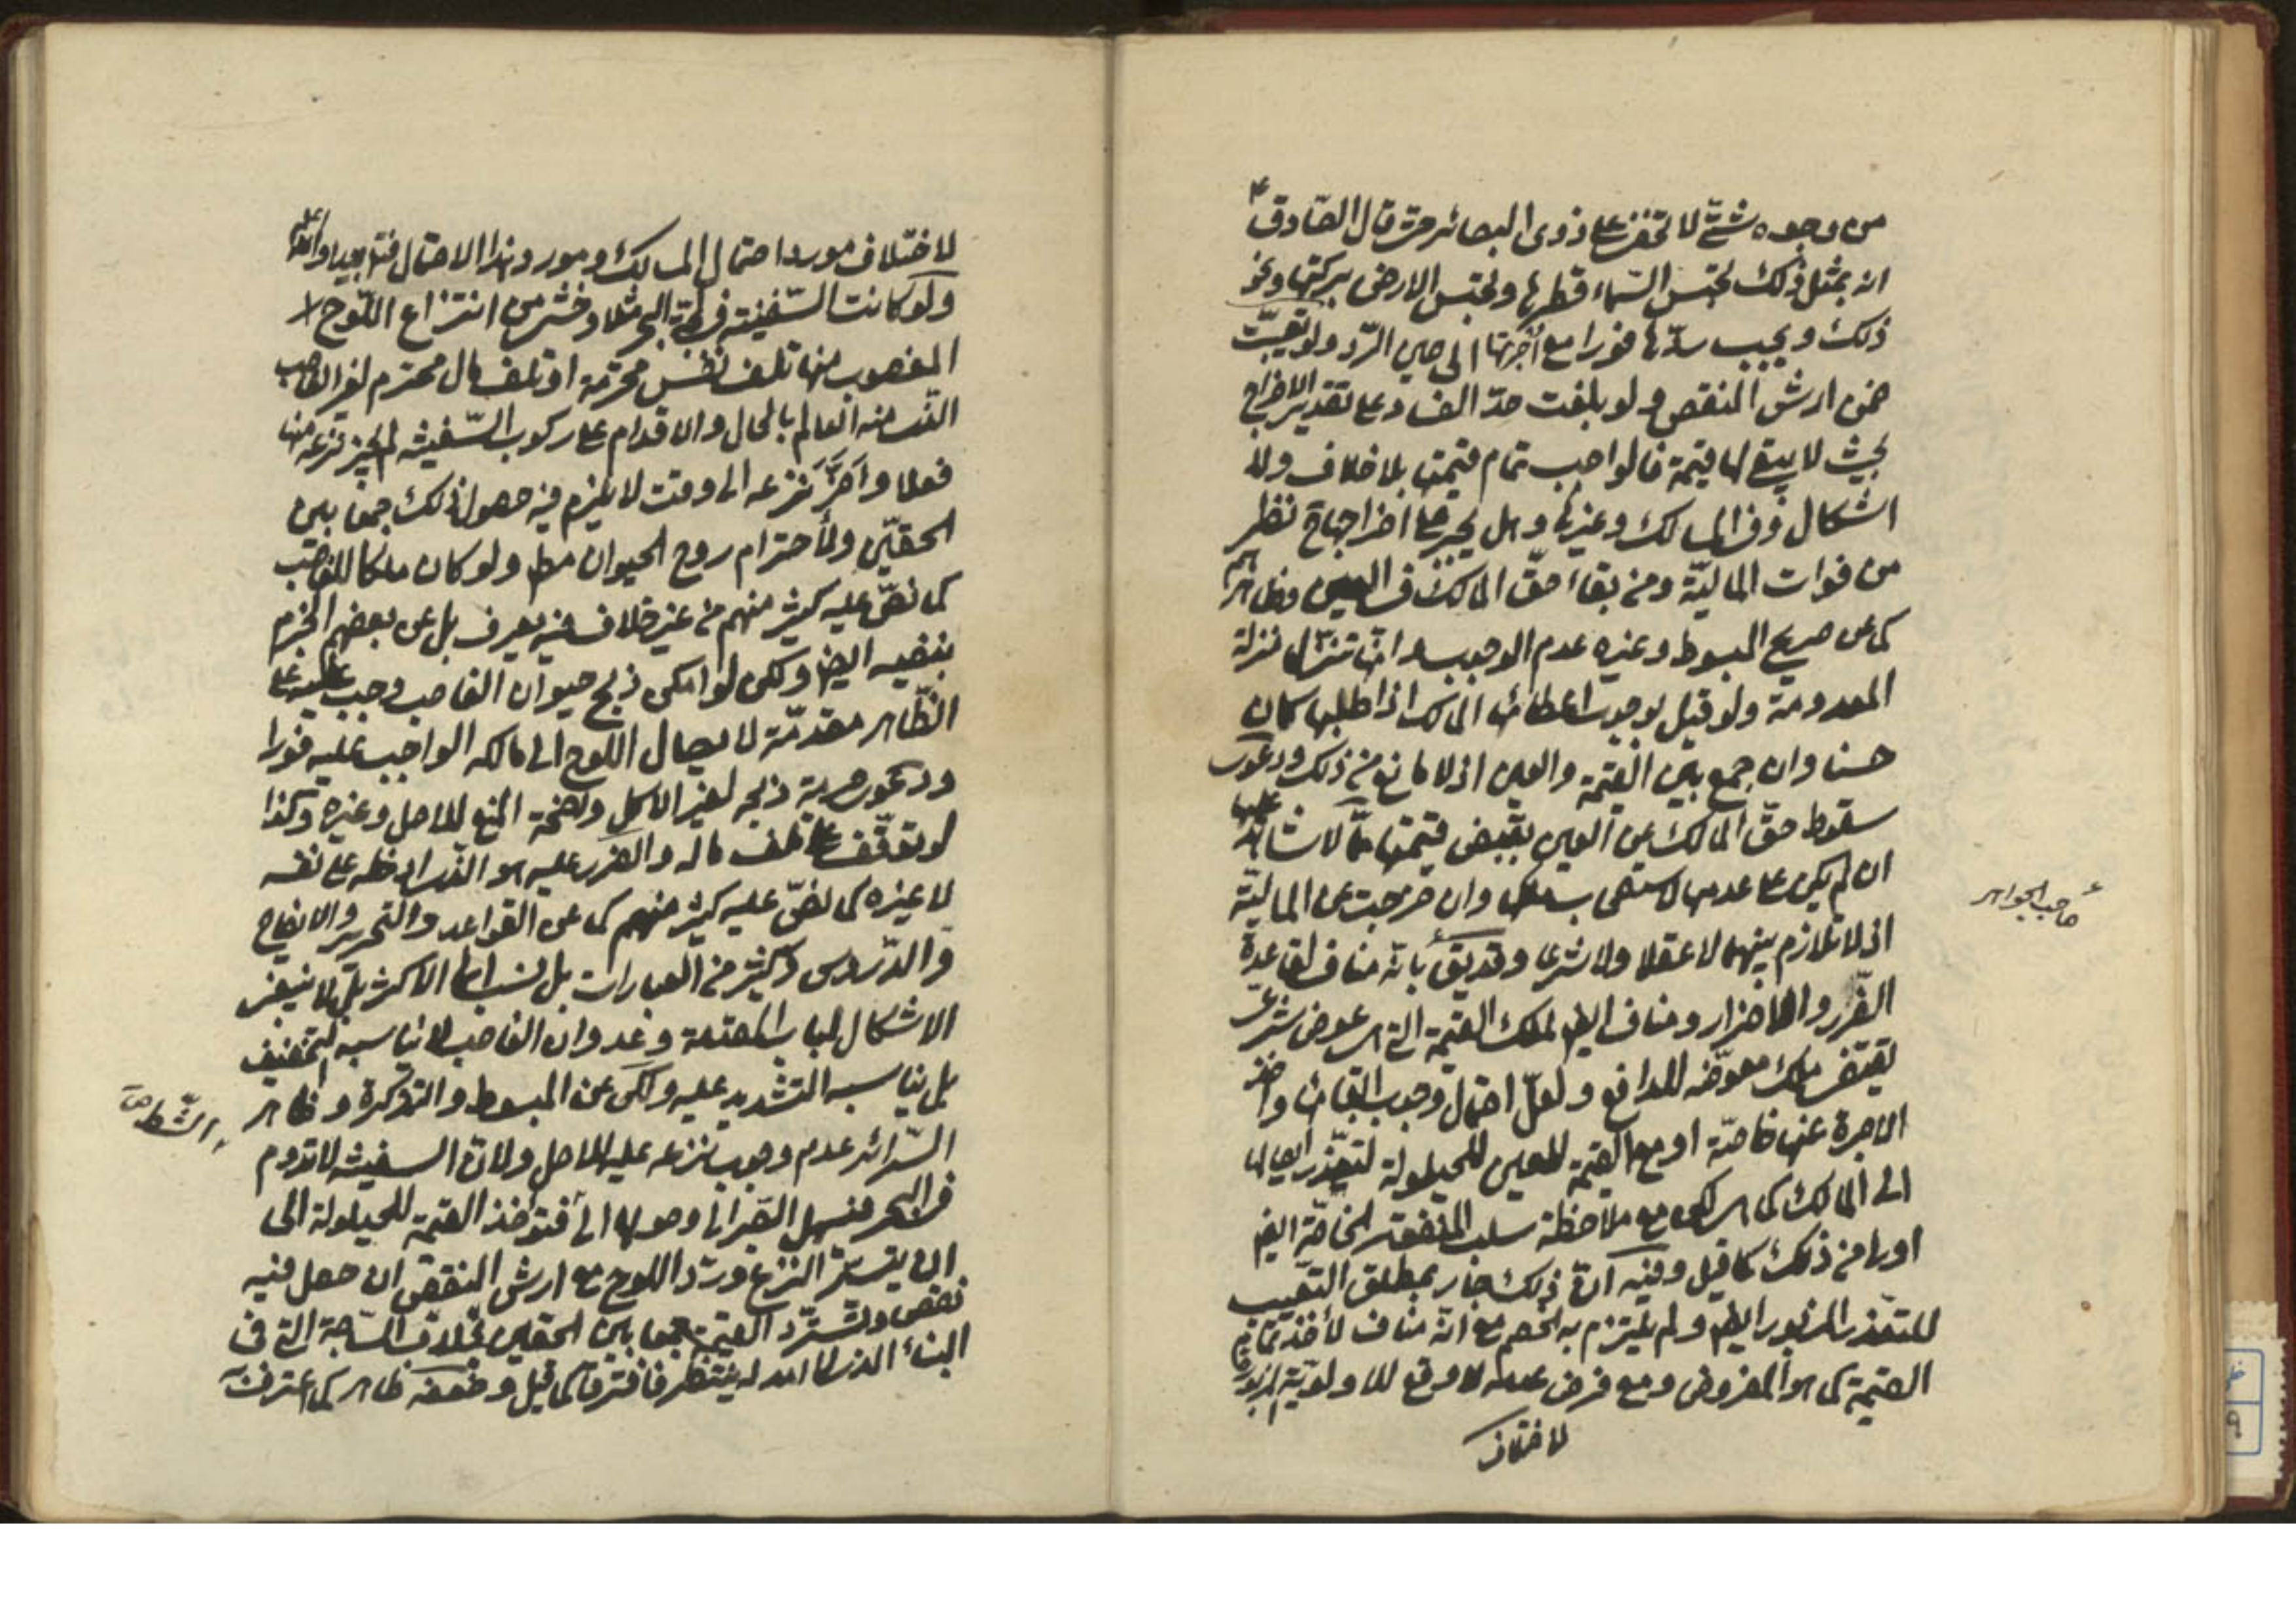 من وجوه شتّى لا تخفى على ذوى البصائر حتى قال الصّادق ع
انه بمثل ذلك تحبس السّماء قطرها وتحبس الارض بركتها ونحو
ذلك ويجب ردّها فورا مع اجرتها الى حين الرّد ولو تعيّبت
ضمن ارش النقص ولو بلغت حدّ الفساد على تقدير الاخراج
بحيث لا يبقى لها قيمة فالواجب تمام قيمتها بلا خلاف ولا
اشكال وفى المسالك وغيرها وهل يجبر على اخراجها ح نظر
من فوات الماليّة ومن بقاء حقّ المالك فى العين وظاهرهم
كما عن صريح المبسوط وغيره عدم الوجوب وانها تنزل منزلة
المعدومة ولو قيل بوجوب اعطائها المالك اذا طلبها كان
حسنا وان جمع بين القيمة والعين اذ لا مانع من ذلك ودعوى
سقوط حقّ المالك عن العين بقبض قيمتها ممّا لا شاهد عليها
ان لم يكن على عدمها لاستصحاب ملكها وان خرجت عن الماليّة
صاحب الجواهر
اذ لا تلازم بينهما لا عقلا ولا شرعا وقد يقال بانّه مناف لقاعدة
الضّرر والاضرار ومناف ايضا لملك القيمة التى هى عوض شرعى
تقتضى ملك معوّضه للدافع ولعلّ احتمال وجوب ابقائها واخذ
الاجرة عنها خاصّة او مع القيمة للعين للحيلولة لتعذّر ايصالها
الى المالك كما هى لكن مع ملاحظة سلب المنفعة الخاصّة ايضا
اولى من ذلك كما قيل وفيه انّ ذلك جار بمطلق التعييب
للتعذر المزبور ايضا ولم يلتزم به الخصم مع انّه مناف لاخذ تمام
القيمة كما هو المفروض ومع فرض عدمه لا وقع للاولويّة المزبورة
لاختلاف
لاختلاف مورد احتمال المسالك ومورد هذا الاحتمال فتدبر جيدا والله العالم
ولو كانت السّفينة فى لجّة البحر مثلا وخشى من انتزاع اللّوح
المغصوب منها تلف نفس محترمة او تلف مال محترم لغير الغاصب
الّذى منه العالم بالحال والاقدام على ركوب السّفينة لم يجز نزعه منها
فعلا واخّر نزعه الى وقت لا يلزم فيه حصول ذلك جمعا بين
الحقّين ولأحترام روح الحيوان مط ولو كان ملكا للغاصب
كما نصّ عليه كثير منهم من غير خلاف فيه يعرف بل عن بعضهم الجزم
بنفيه ايضا ولكن لو امكن ذبح حيوان الغاصب وجب عليه على
الظّاهر مقدّمة لايصال اللوح الى مالكه الواجب عليه فورا
ودعوى حرمة ذبحه لغير الاكل واضحة المنع للاصل وغيره وكذا
لو توقّف على تلف ماله والضرر عليه هو الّذى ادخله على نفسه
لا غيره كما نصّ عليه كثير منهم كما عن القواعد والتّحرير والايضاح
والدّروس وكثير من العبارات بل نسب الى الاكثر بل لا ينبغى
الاشكال لباب المقدمة وعدوان الغاصب لا يناسبه التخفيف
بل يناسبه التشديد عليه ولكن عن المبسوط والتذكرة وظاهر
السّرائر عدم وجوب نزعه عليه للاصل ولانّ السفينة لا تدوم
فى البحر فيسهل الصّبر الى وصولها الى فتؤخذ القيمة للحيلولة الى
ان يتيسّر النزع وردّ اللوح مع ارش النقص ان حصل فيه
نقص وتستردّ القيمة جمعا بين الحقين بخلاف السّاجة التى فى
البناء الذى لا امد له ينتظر فافترقا كما قيل وضعفه ظاهر كما اعترف